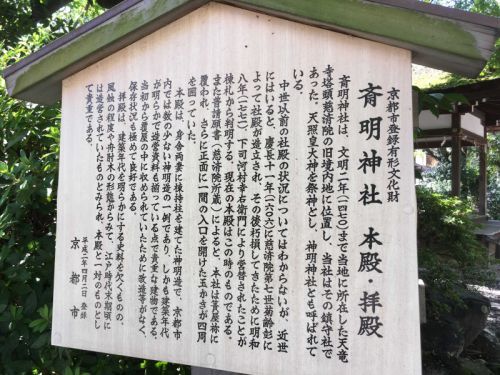 京都市登録有形文化財
斎明神社 本殿・拝殿
斎明神社は、文明二年（一四七〇）まで当地に所在した天竜
寺塔頭慈済院の旧境内地に位置し、当社はその鎮守社で
あった。天照皇大神を祭神とし、神明神社とも呼ばれて
いる。
中世以前の社殿の状況についてはわからないが、近世
にはいると、慶長十一年（一六〇六）に慈済院第七世菊齢彰に
よって社殿が造立され、その後朽損してきたために明和
八年（一七七一）、下司河村幸右衛門により営替されたことが
棟札から判明する。現在の本殿はこの時のものである。
また普請願書（慈済院所蔵）によると、本社は茅屋祢に
覆われ、さらに正面に一間の入口を開けた玉かきが四周
を囲っていた。
本殿は、身舎両妻に棟持柱を建てた神明造で、京都市
内では数の少ない神明造の一例であり、しかも建築年代
が明らかで造営資料も揃っている点で貴重な建物である。
当初から覆屋の中に収められていたために改造等がなく、
保存状況も極めて良好である。
拝殿は、建築年代を明らかにする史料を欠くものの、
風蝕の程度や舟肘木の形態からみて、江戸時代末期頃に
は造営されていたものとみられ、本殿と一対のものとし
て貴重である。
平成二年四月二日 登録
京都市